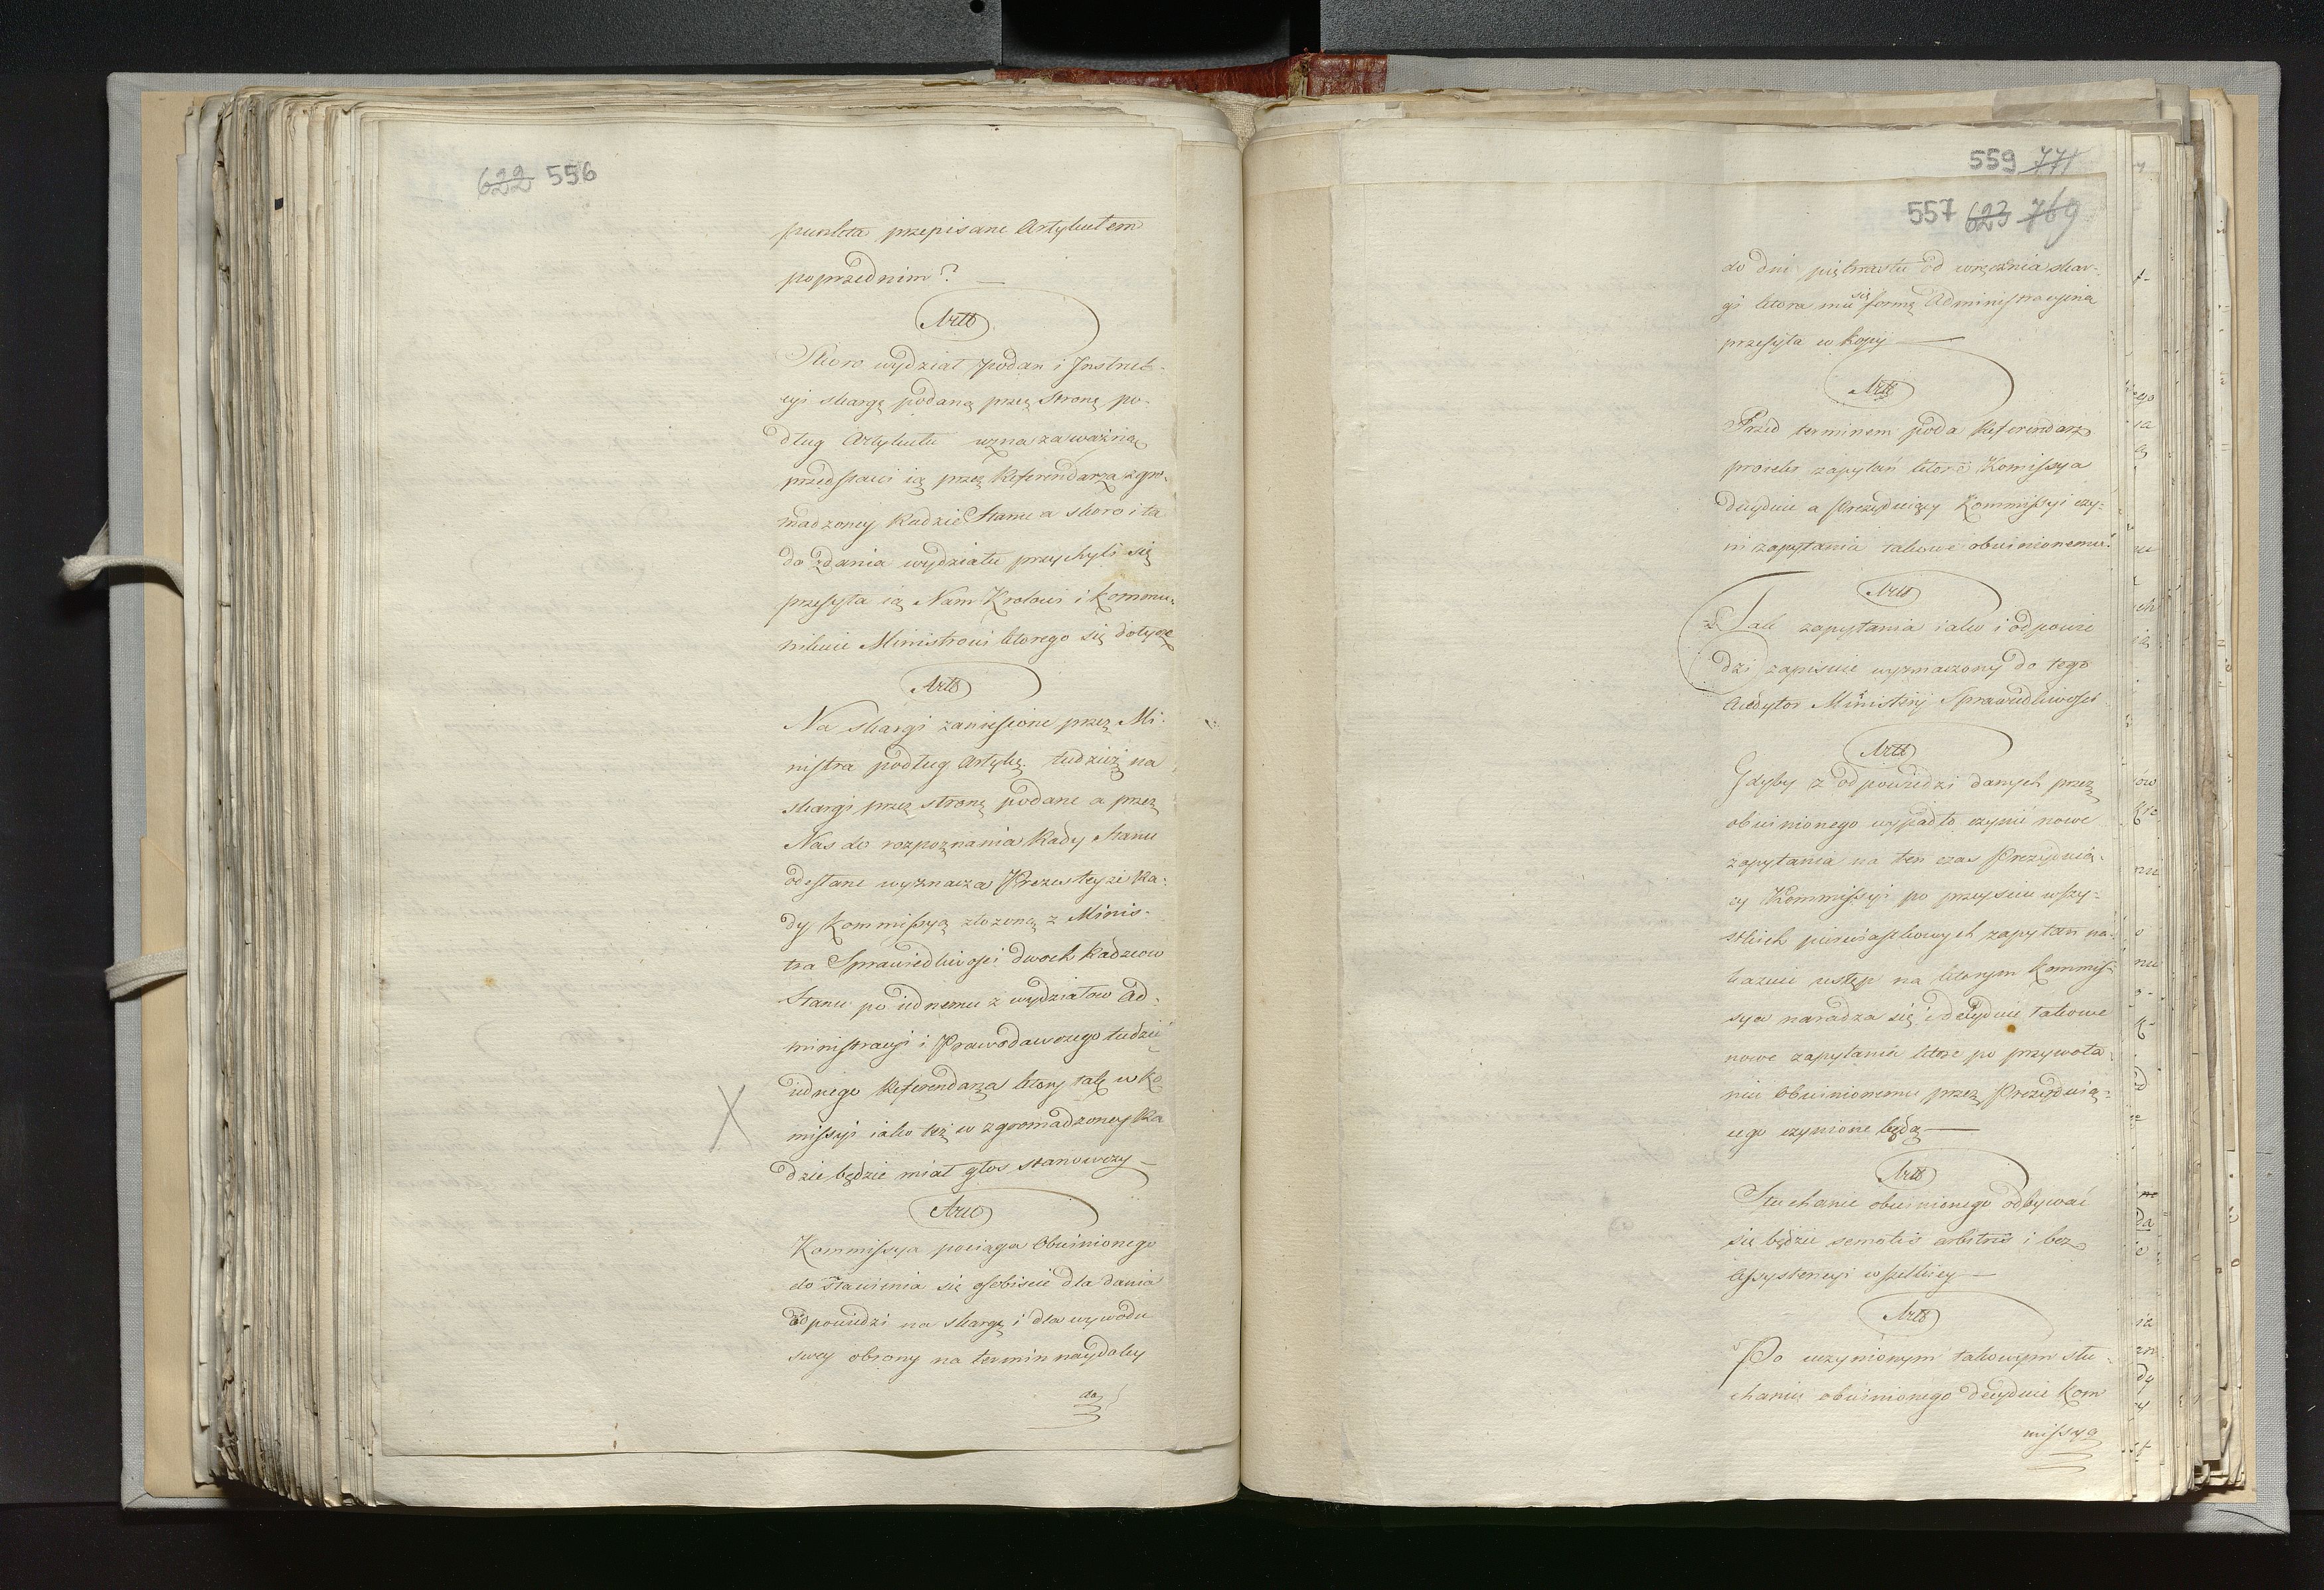 622 556
punkta przepisane Artykułem
poprzednim?
Artt
Skoro wydział podan i Jnstruk-
cyi skargę podaną przez Stronę po-
dług Artykułu uzna za ważną
przedstawi ią przez Referendarza zgro-
madzoney Radzie Stanu a skoro i ta
do zdania wydziału przychyli się
przesyła ią Nam Krolowi i kommu-
nikuie Ministrowi ktorego się dotycze
Artt
Na skargi zaniesione przez Mi-
nistra podług Artykı. tudzież na
skargi przez stronę podane a przez
Nas do rozpoznania Rady Stanu
odesłane wyznacza Prezes teyże Ra-
dy Kommissyą złożoną z Minis-
tra Sprawiedliwości dwoch Radzcow
Stanu po iednemu z wydziałow Ad-
ministracyi i Prawodawczego tudzież
iednego Referendarza ktory tak w Ko-
missyi iako też w zgromadzoney Ra
dzie będzie miał głos stanowczy
Artt
Kommissya pociąga Obwinionego
do stawienia się osobiscie dla dania
odpowiedzi na skargę i dla wywodu
swey obrony na termin naydaley
do
559 771
557 623 769
do dni piętnastu od wręczenia skar-
gi ktora mu się formą Administracyina
przesyła w kopij
Artt
Przed terminem poda Referendarz
proiekt zapytań ktore Komissya
decyduie a Prezyduiący Kommissyi czy-
ni zapytania takowe obwinionemu.
Artt
Tak zapytania iako i odpowie
dzi zapisuie wyznaczony do tego
Audytor Ministrij Sprawiedliwości
Artt
Gdyby z odpowiedzi danych przez
obwinionego wypadło czynić nowe
zapytania na ten czas Prezyduią-
cy Kommissyi po przeysciu wszy-
stkich pierwiastkowych zapytań na-
kazuie ustęp na ktorym Kommis-
sya naradza się i decyduie takowe
nowe zapytania ktore po przywoła-
niu Obwinionemu przez Prezyduią-
cego czynione będą
Artt
Słuchanie obwinionego odbywać
się będzie semotis arbitris i bez
Assystencyi wszelkiey
Artt
Po uczynionym takowym słu-
chaniu obwinionego decyduie Kom
missya